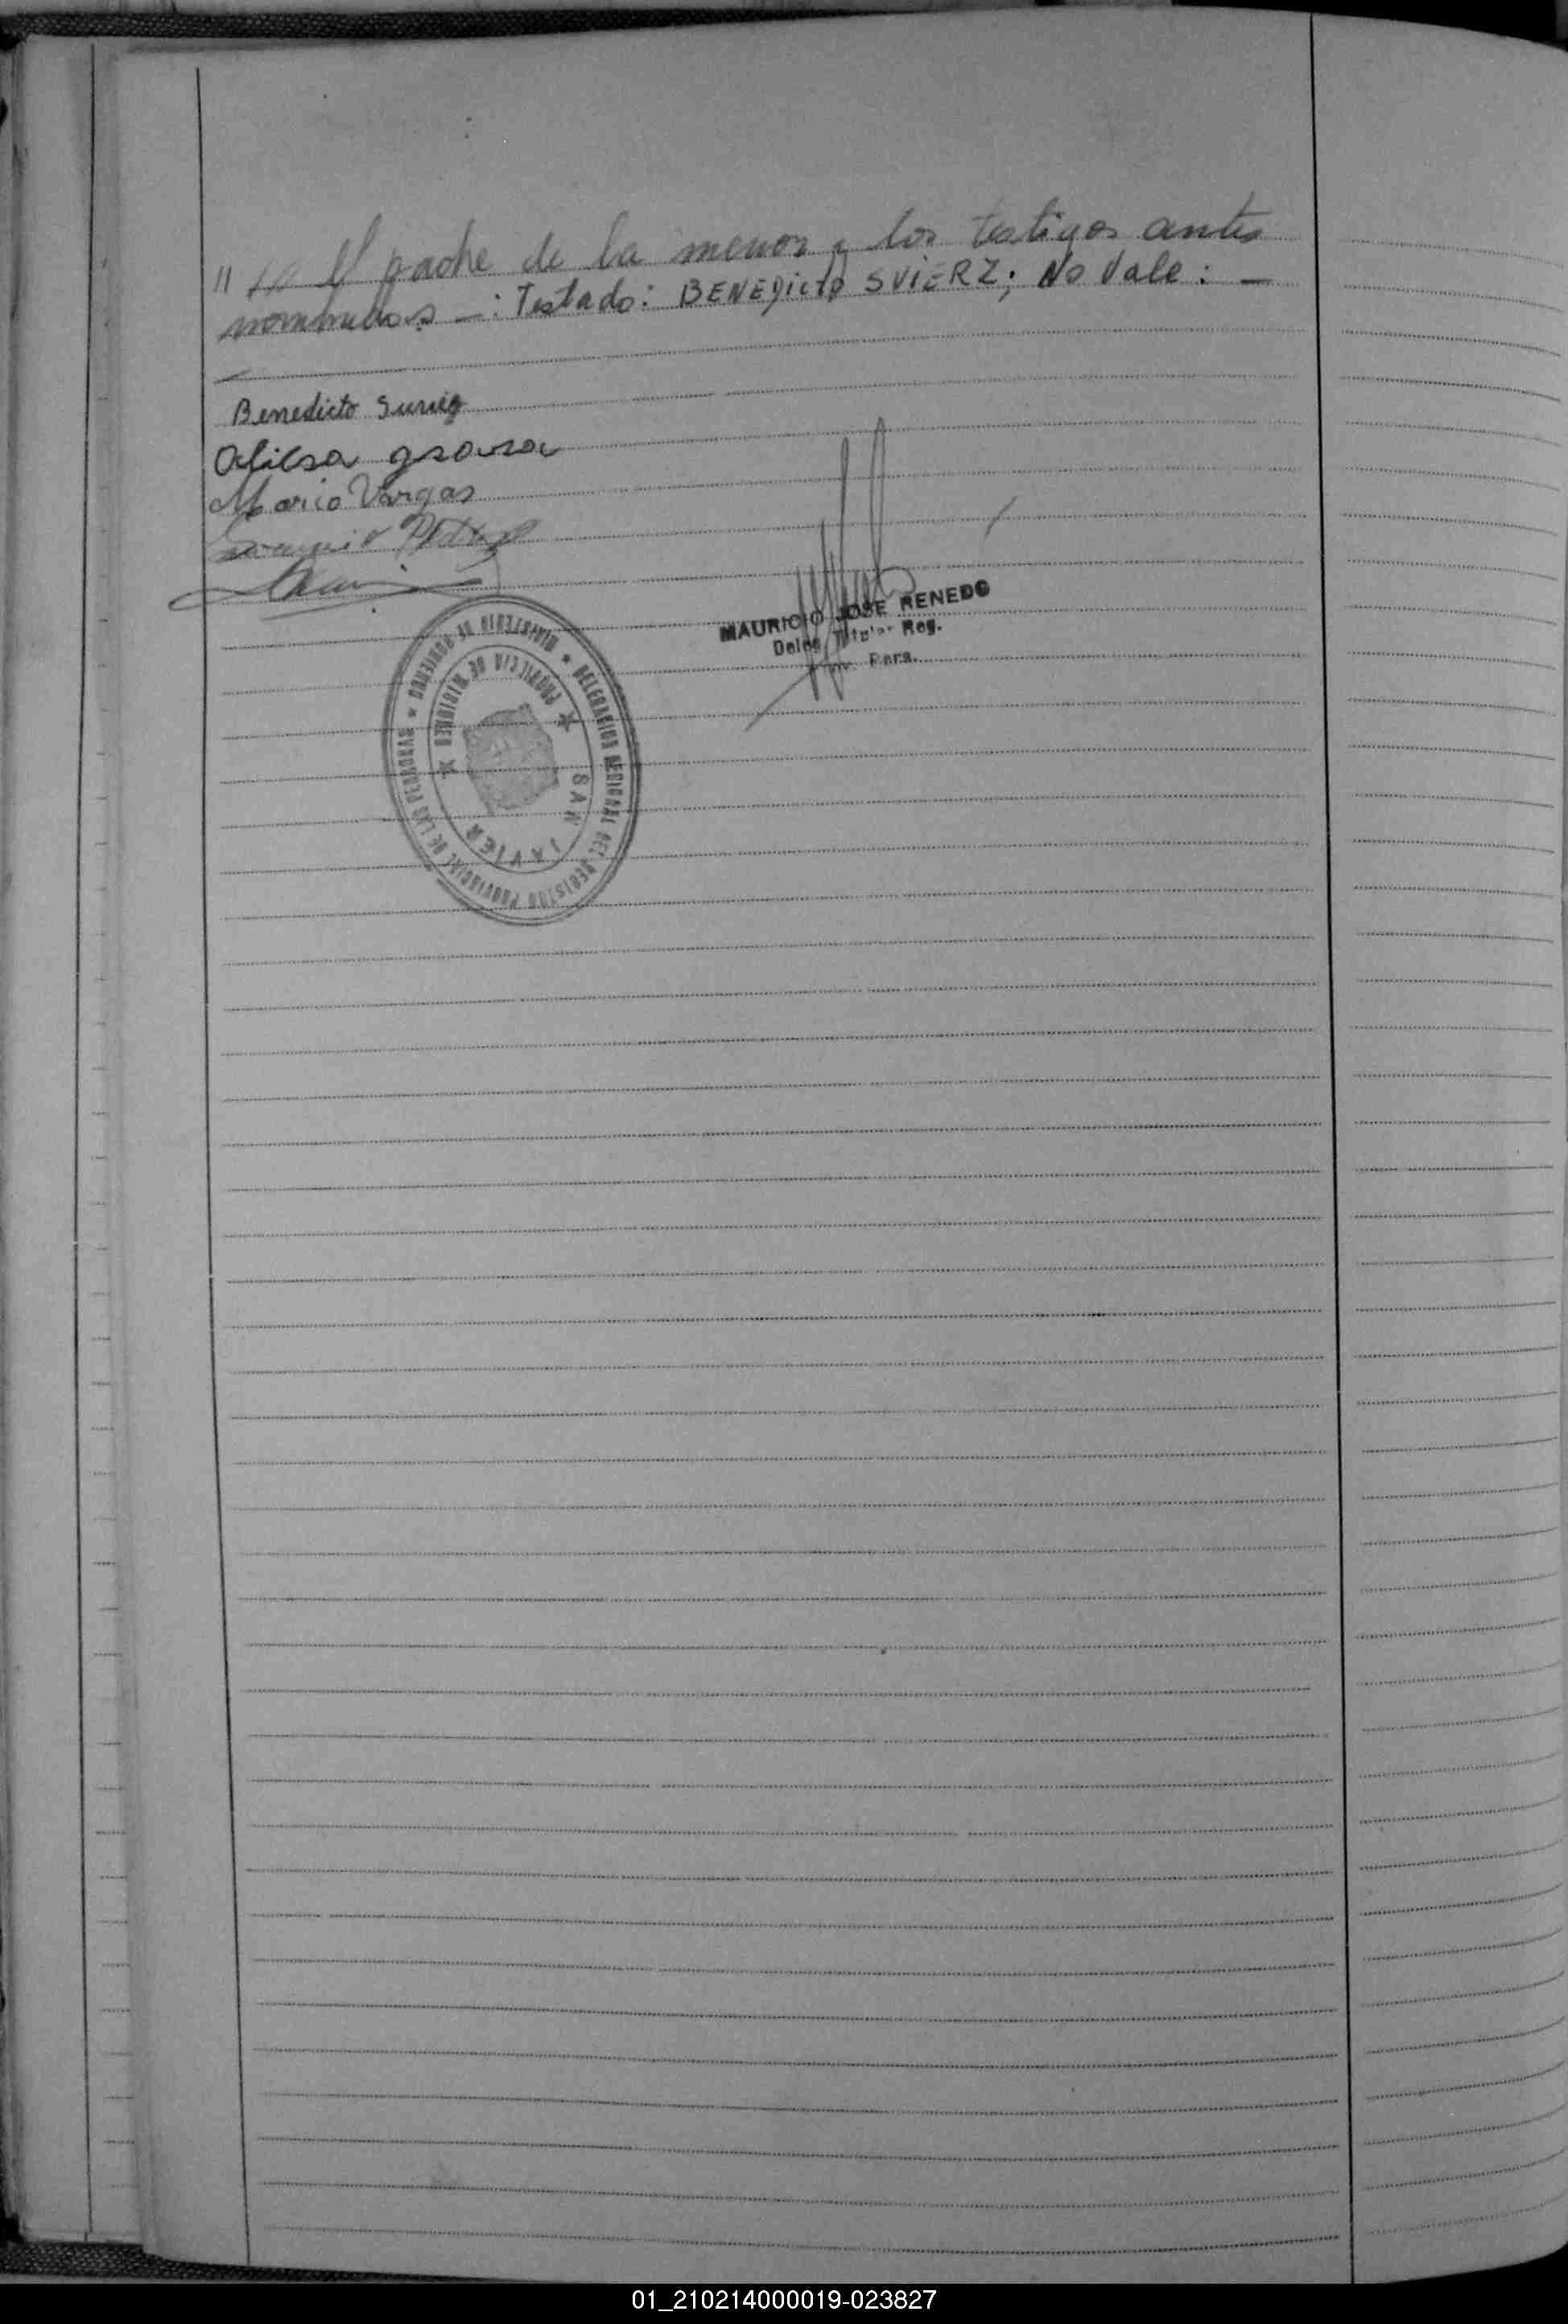 // El padre de la menor y los testigos antes
nombrados –: Testado: BENEDICTO SVIERZ; No Vale: –
Benedicto
Mario Vargas
MAURICIO JOSE RENEDO
Deleg. Titular Reg.
Pers.
MINISTERIO DE GOBIERNO ★ DELEGACION REGIONAL DEL REGISTRO PROVINCIAL DE LAS PERSONAS ★
PROVINCIA DE MISIONES
SAN JAVIER
01_210214000019-023827